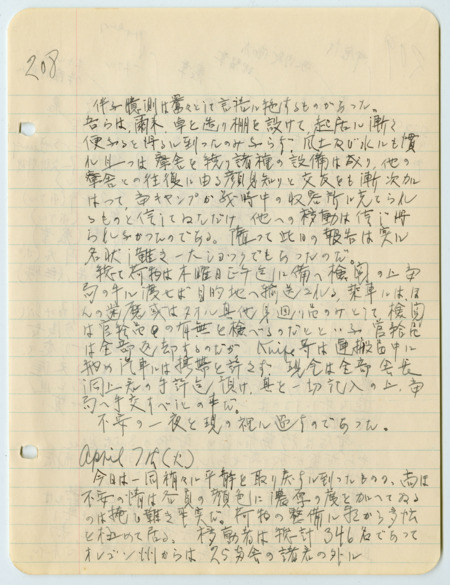 208
伴ふ臆測は営々として言語に絶するものがあった。
吾らは、爾来、卓を造り棚を設けて、起居に漸く
便ふると得るに到ったのみならず、風土及び水にも慣
れ且つは舎を続る諸種の設備は成り、他の
舎舎との往復に由る顔見知りと交友とも漸次加
はつて、当キャンプが戦時中の収容所に充てられ
るものと信じてねただけ、他への移動は信じ得
られなかったのである。従って此日の報告は実に
名状し難き一大ショックでもあったのだ。
荷物は木曜日正午迄に備へ検閲の上当
局の手に渡せば目的地へ輸送される。乗車にはほ
んの歯磨或はタオル其他手回り品のみとして検閲
は官給品の有無を検べるのだといふ 官給品
は全部返却するのだが Knife等は運搬途中に
汽車には携帯を許さず、現金は全部会長
川上氏の手許迄預け、其を一切記入の上、当
局へ手交すべしとの事だ。
不安の一夜を現の裡に過すのであった。
April 7th (火)
今日は一同稍々に平静を取り戻すに到ったものの、尚ほ
不安の情は各員の顔色に濃厚の度を加へてゐる
のは掩ひ難き事実だ。荷物の整備に
を極めて居る。移動者は総計346名であって
オレゴン州からは25舎の諸君の外に